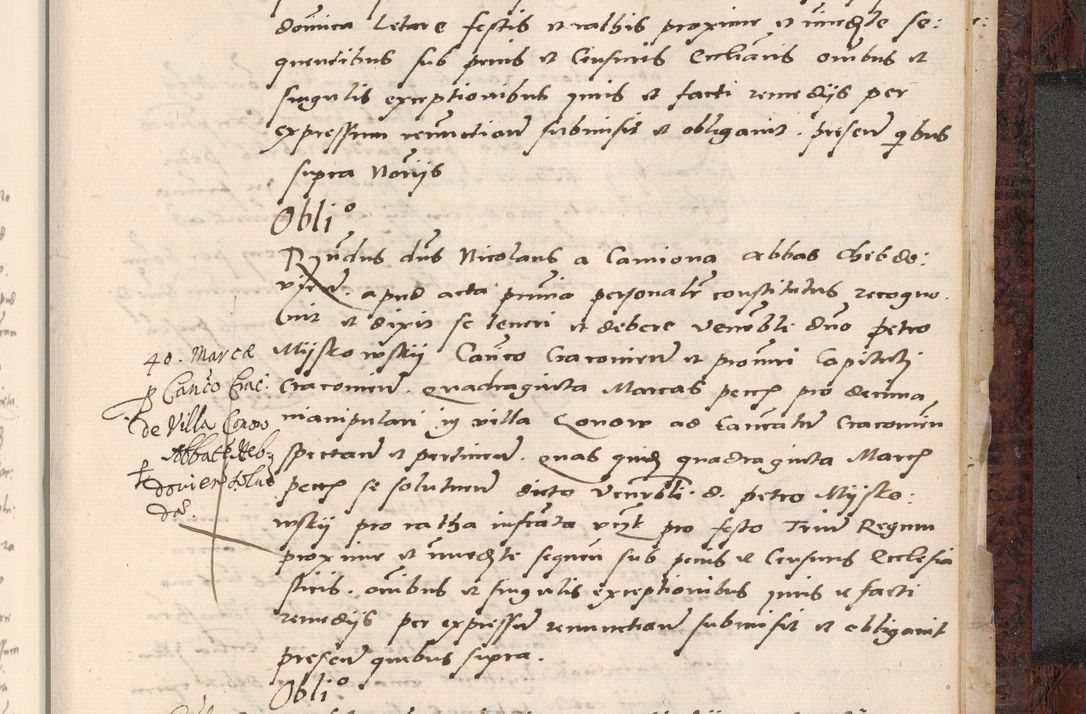 domīca Letare festis et rathis proxime et īmedte se:
quentibus sub penis et Censuris Ecclīaris oībus et
singulis exceptionibus juris et facti remedijs per
expressum renūctiaō submisit et obligavit. presen̄ qbus
supra Norijs
Obli⁰
Rn̄dus dūs Nicolaus a Camiona abbas Cheb do:
apud acta prn̄ia personalr constitutus recogno
vit et dixit se teneri et debere venerbli dno petro
Mijskowskij Canco Cracovien̄ et procuri Capituli
Cracovien̄. quadraginta Marcas pecc pro decima
manipulari in villa Conow ad Cancatum Cracovien̄
spectan̄ et pertinen̄. quas quidem quadraginta Marc
pecc se soluturum dicto venerbli. d. petro Mijsko:
wskij pro ratha infrata vizt pro festo Trium Regum
proxime et īmedte sequen sub penis et Censuris Ecclesia
sticis. oībus et singulis exceptionibus juris et facti
remedijs per expressū renunctiaō submisit et obligavit
presen̄ quibus supra.
Obli⁰
40. Marcæ
p Canco Crac.
de Villa Conow
Abbate Heb
dovien̄ solve
da